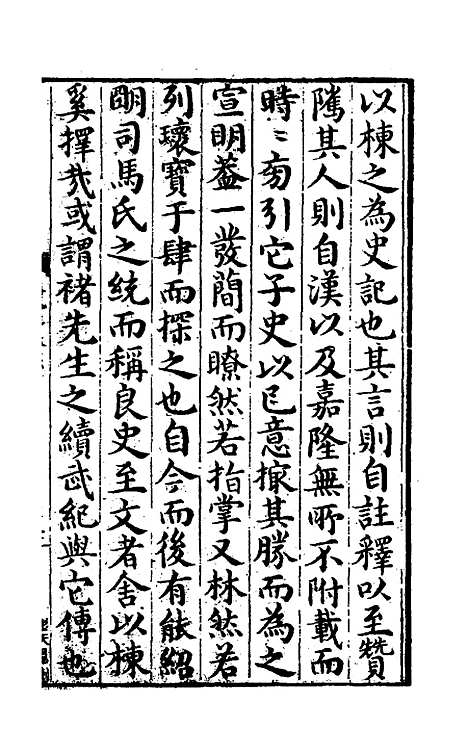 以棟之為史記也其言則自註釋以至贊
隲其人則自漢以及嘉隆無所不附載而
時〻旁引它子史以己意撮其勝而為之
宣明葢一發蕳而瞭然若指掌又林然若
列瓌寶于肆而探之也自今而後有能紹
明司馬氏之統而稱良史至文者舍以棟
奚擇哉或謂褚先生之續武紀與它傳也